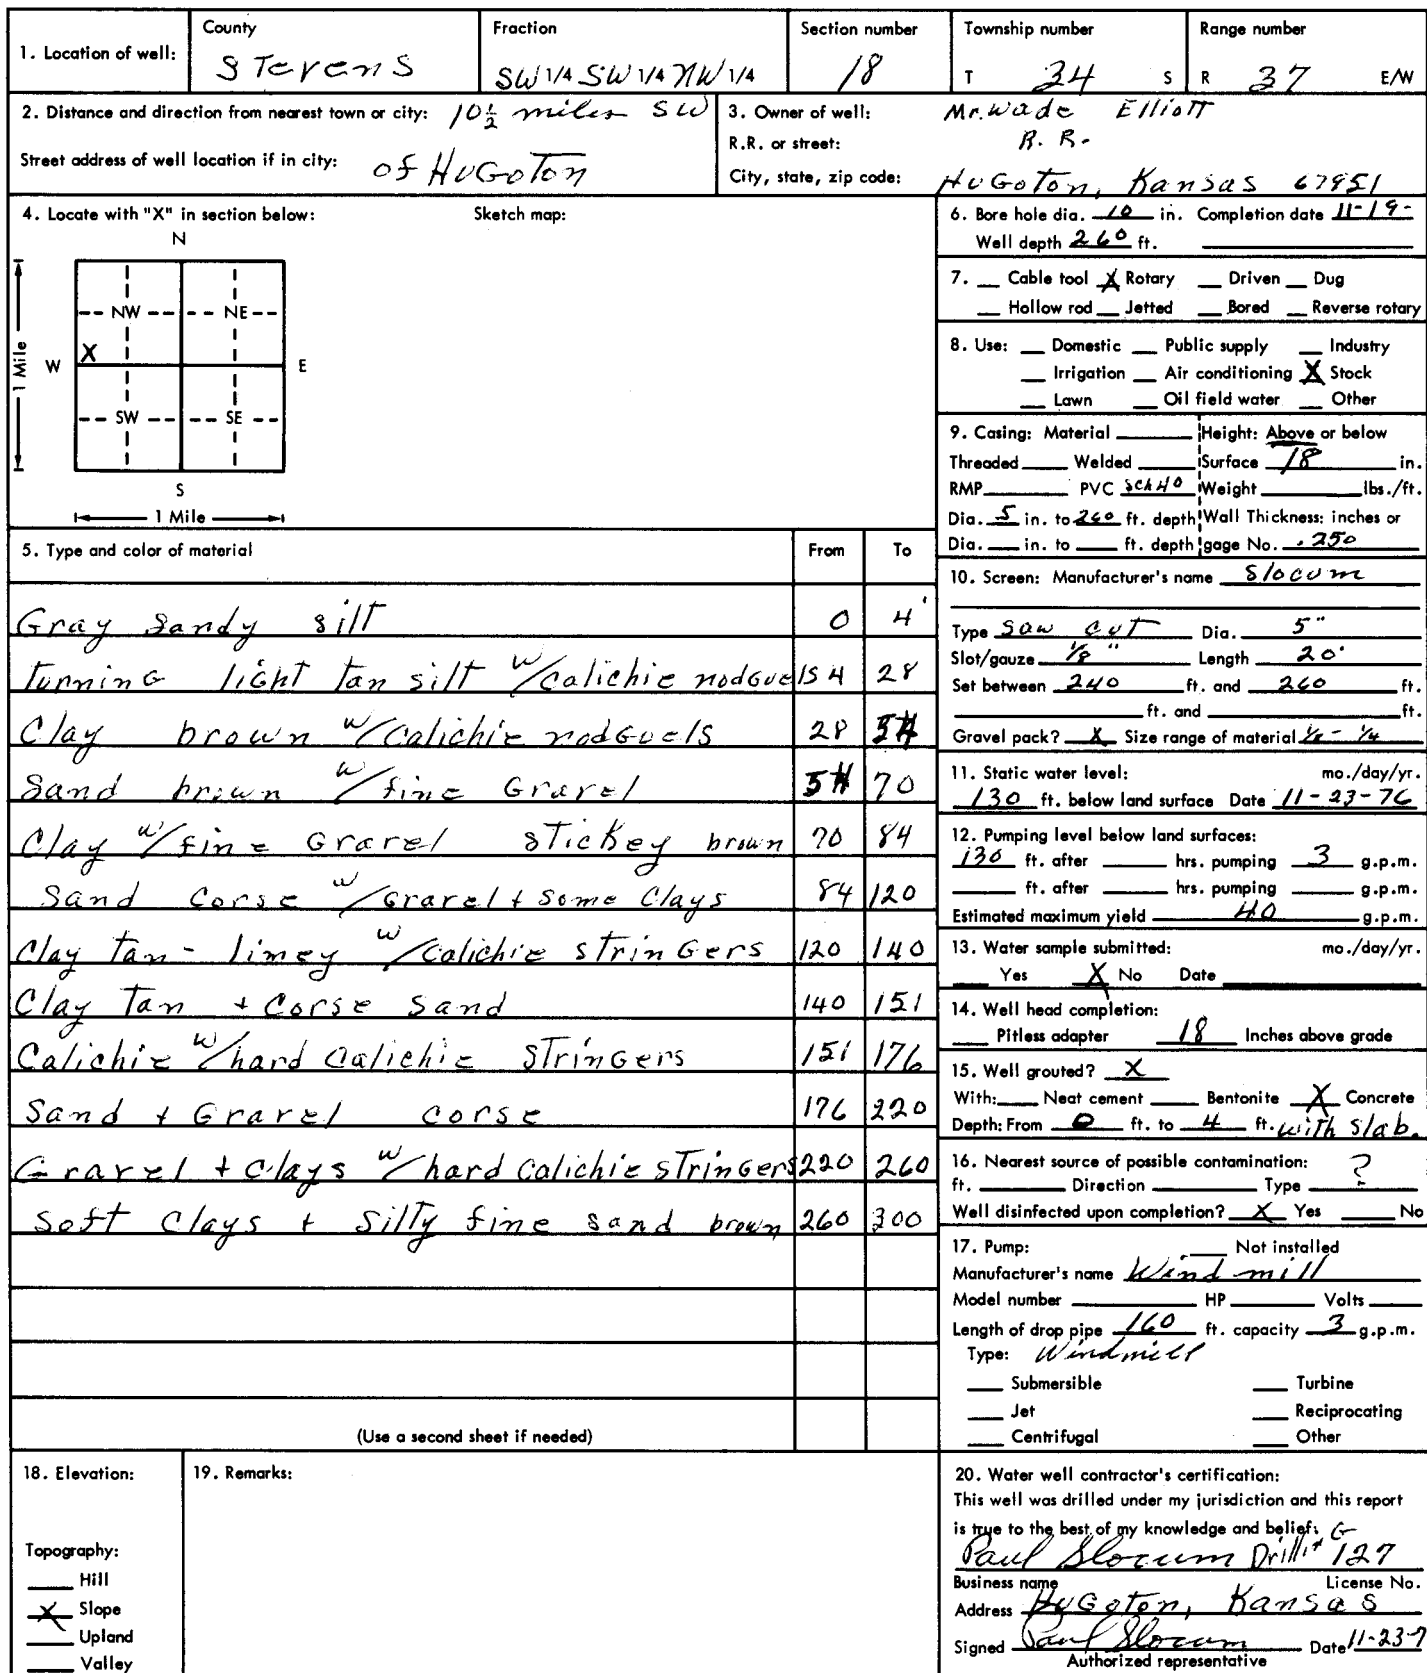 1. Location of well:
County
Stevens
Fraction
SW 1/4 SW 1/4 NW 1/4
Section number
18
Township number
T 34 S
Range number
R 37 E/W
2. Distance and direction from nearest town or city: 10½ miles SW
Street address of well location if in city: of HuGoTon
3. Owner of well: Mr. Wade Elliott
R.R. or street: R. R.
City, state, zip code: HuGoTon, Kansas 67951
4. Locate with "X" in section below: Sketch map:
N
NW NE
X
W E
1 Mile
SW SE
S
1 Mile
5. Type and color of material From To
Gray Sandy silt 0 4'
Turning light tan silt w/calichie nodguels 4 28
Clay brown w/calichie nodguels 28 54
Sand brown w/fine Gravel 54 70
Clay w/fine Gravel stickey brown 70 84
Sand Corse w/Gravel + Some Clays 84 120
Clay tan - limey w/calichie stringers 120 140
Clay Tan + Corse Sand 140 151
Calichie w/hard Calichie stringers 151 176
Sand + Gravel corse 176 220
Gravel + Clays w/hard calichie stringers 220 260
Soft Clays + Silty fine sand brown 260 300
(Use a second sheet if needed)
6. Bore hole dia. 10 in. Completion date 11-19-
Well depth 260 ft.
7. Cable tool X Rotary Driven Dug
Hollow rod Jetted Bored Reverse rotary
8. Use: Domestic Public supply Industry
Irrigation Air conditioning X Stock
Lawn Oil field water Other
9. Casing: Material Height: Above or below
Threaded Welded Surface 18 in.
RMP PVC sch40 Weight lbs./ft.
Dia. 5 in. to 260 ft. depth Wall Thickness: inches or
Dia. in. to ft. depth gage No. .250
10. Screen: Manufacturer's name Slocum
Type Saw cut Dia. 5"
Slot/gauze 1/8" Length 20'
Set between 240 ft. and 260 ft.
ft. and ft.
Gravel pack? X Size range of material 1/8 - 1/4
11. Static water level: mo./day/yr.
130 ft. below land surface Date 11-23-76
12. Pumping level below land surfaces:
130 ft. after hrs. pumping 3 g.p.m.
ft. after hrs. pumping g.p.m.
Estimated maximum yield 40 g.p.m.
13. Water sample submitted: mo./day/yr.
Yes X No Date
14. Well head completion:
Pitless adapter 18 Inches above grade
15. Well grouted? X
With: Neat cement Bentonite X Concrete
Depth: From 0 ft. to 4 ft. with slab.
16. Nearest source of possible contamination:
ft. Direction Type ?
Well disinfected upon completion? X Yes No
17. Pump: Not installed
Manufacturer's name Wind mill
Model number HP Volts
Length of drop pipe 160 ft. capacity 3 g.p.m.
Type: Windmill
Submersible Turbine
Jet Reciprocating
Centrifugal Other
18. Elevation:
Topography:
Hill
X Slope
Upland
Valley
19. Remarks:
20. Water well contractor's certification:
This well was drilled under my jurisdiction and this report
is true to the best of my knowledge and belief.
Paul Slocum 127
Business name License No.
Address HuGoton, Kansas
Signed Paul Slocum Date 11-23-7
Authorized representative